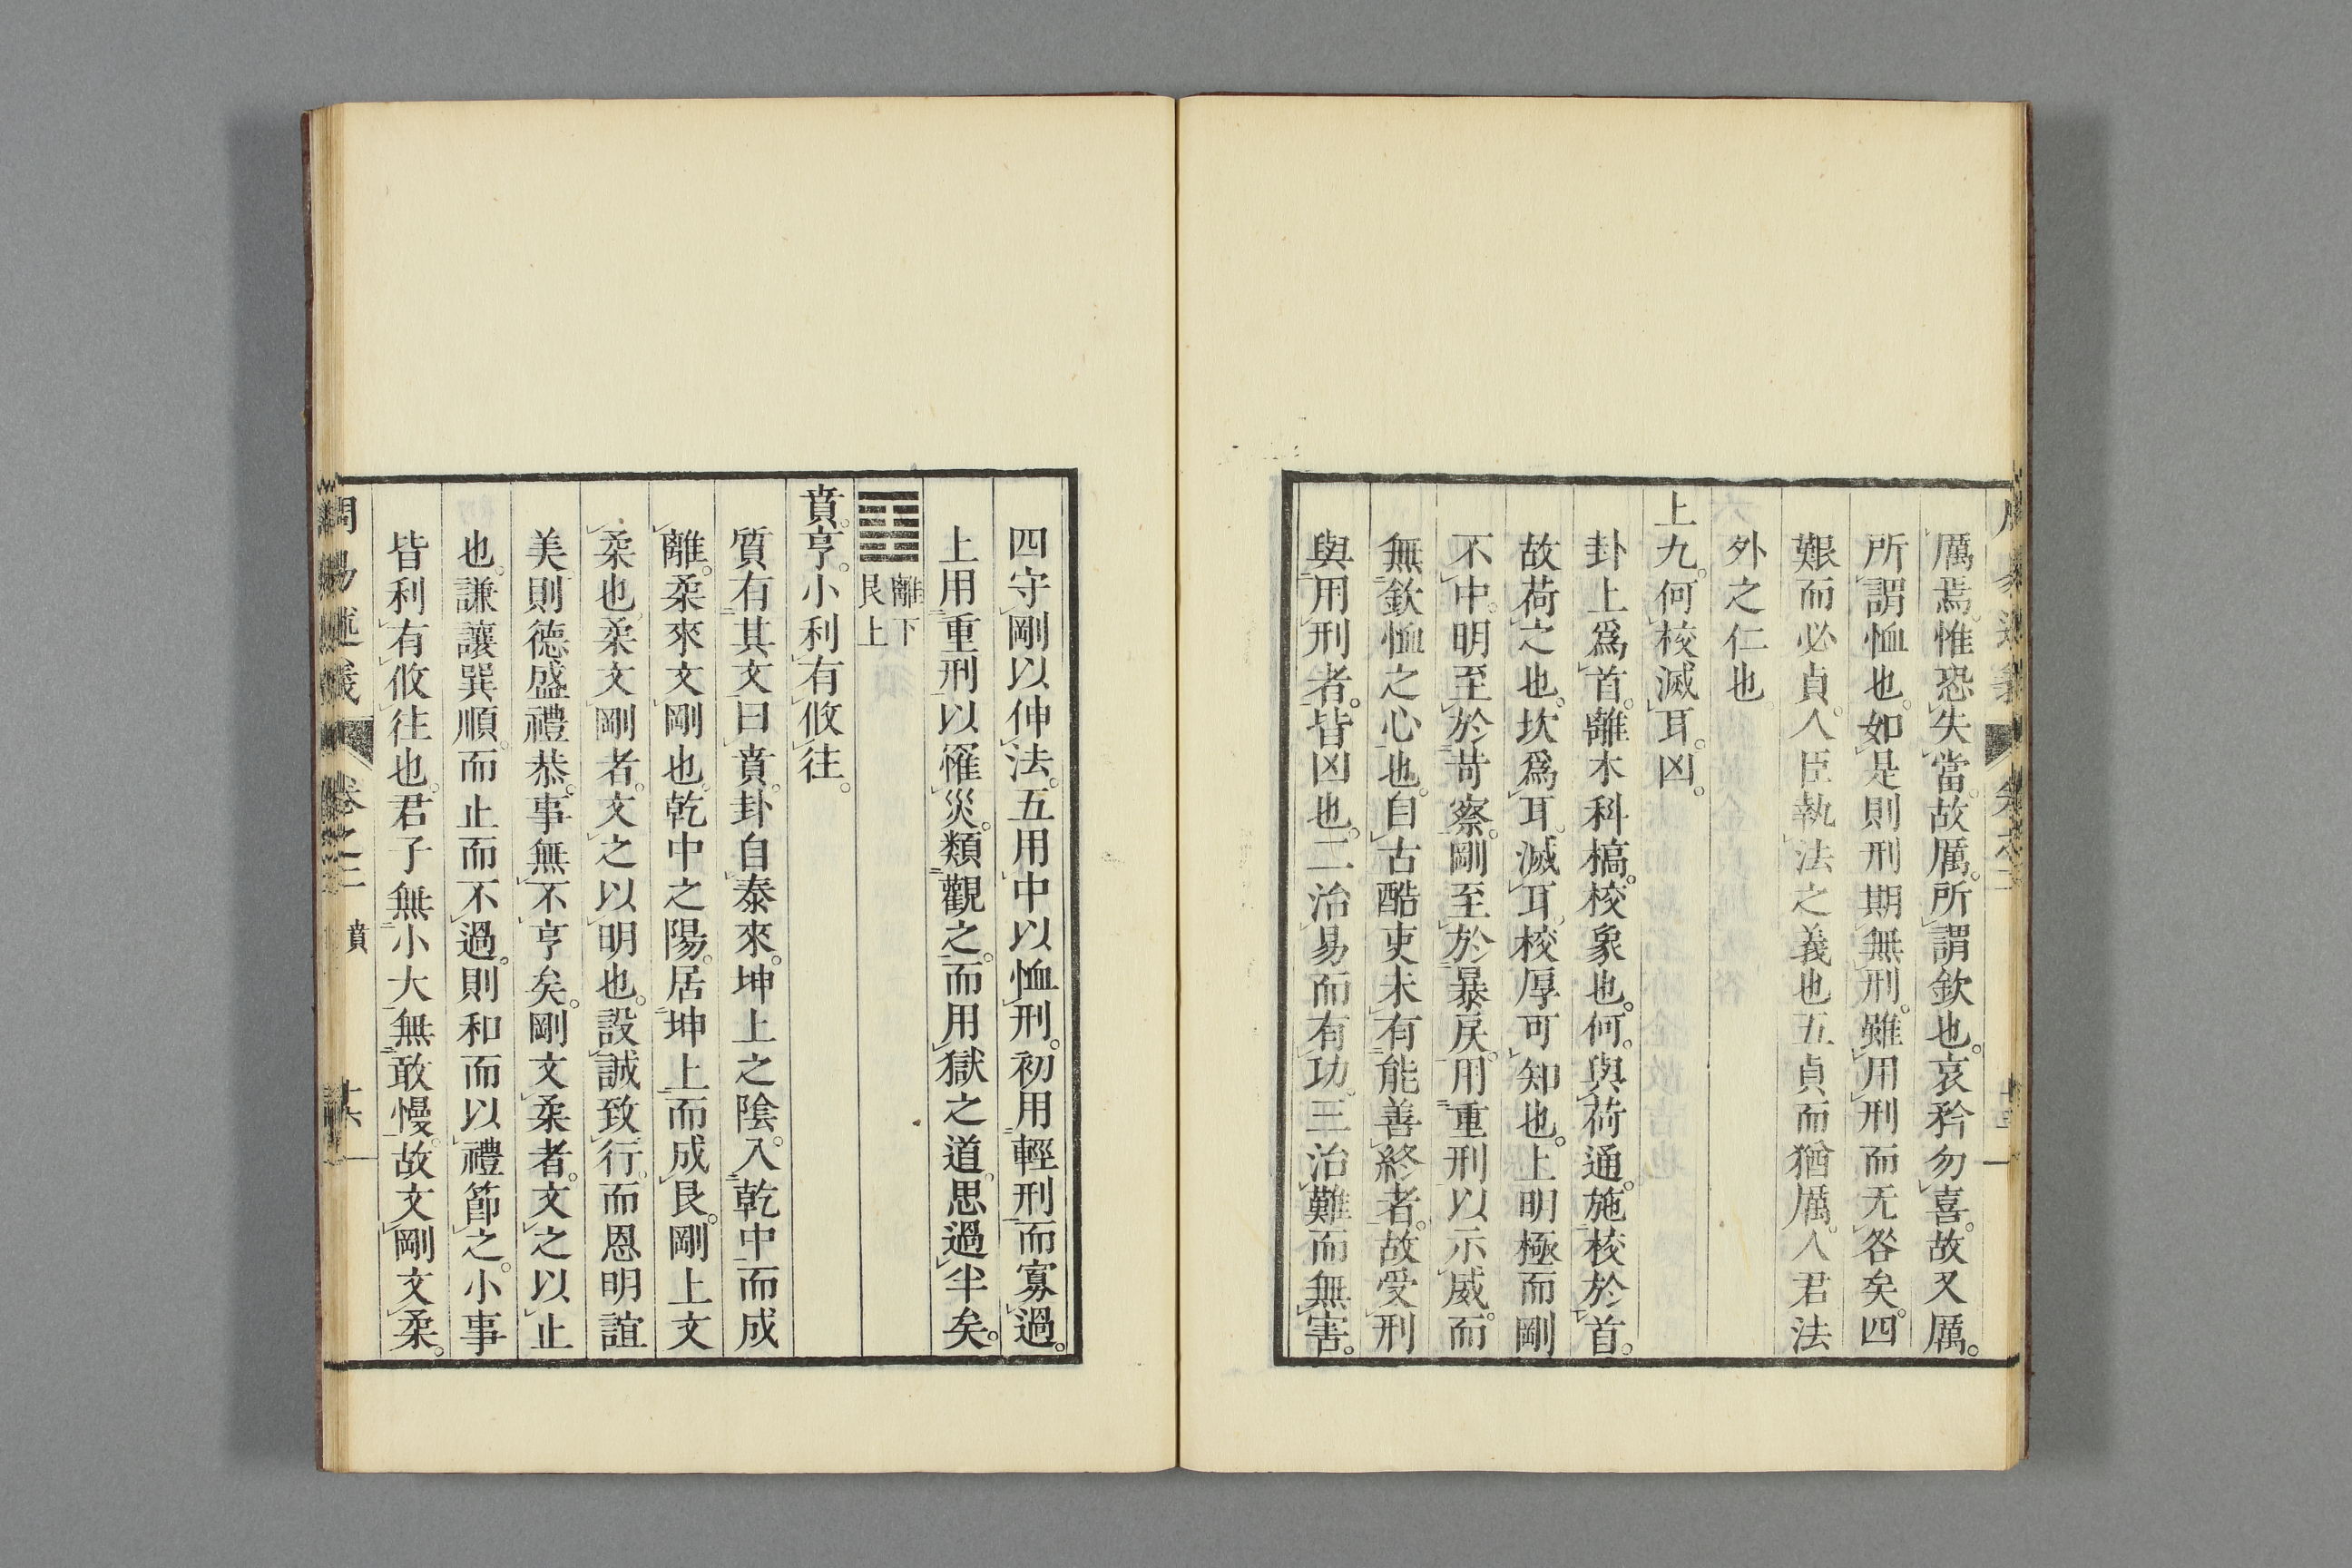 厲焉。惟恐失當。故厲。所謂欽也。哀矜勿喜。故又厲。
所謂恤也。如是則刑期無刑。雖用刑而无咎矣。四
艱而必貞。人臣執法之義也五貞而猶厲。人君法
外之仁也。
上九。何校滅耳。凶。
卦上爲首。離木科槁。校象也。何。與荷通。施校於首。
故荷之也。坎爲耳。滅耳。校厚可知也。上明極而剛
不中。明至於苛察。剛至於暴戾。用重刑以示威。而
無欽恤之心也。自古酷吏未有能善終者。故受刑
與用刑者。皆凶也。二治易而有功。三治難而無害。
四守剛以伸法。五用中以恤刑。初用輕刑而寡過。
上用重刑以罹災。類觀之。而用獄之道。思過半矣。
離下
艮上
賁。亨。小利有攸往。
質有其文曰賁。卦自泰來。坤上之陰。入乾中而成
離。柔來文剛也。乾中之陽。居坤上而成艮。剛上文
柔也。柔文剛者。文之以明也。設誠致行。而恩明誼
美則德盛禮恭。事無不亨矣。剛文柔者。文之以止
也。謙讓巽順。而止而不過。則和而以禮節之。小事
皆利有攸往也。君子無小大無敢慢。故文剛文柔。
周易述義 卷之三 賁 十六